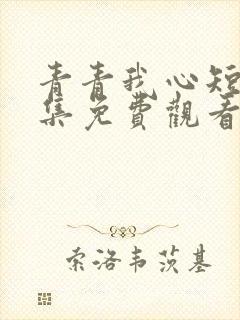 青青我心短
集免費觀看
索洛韦茨基